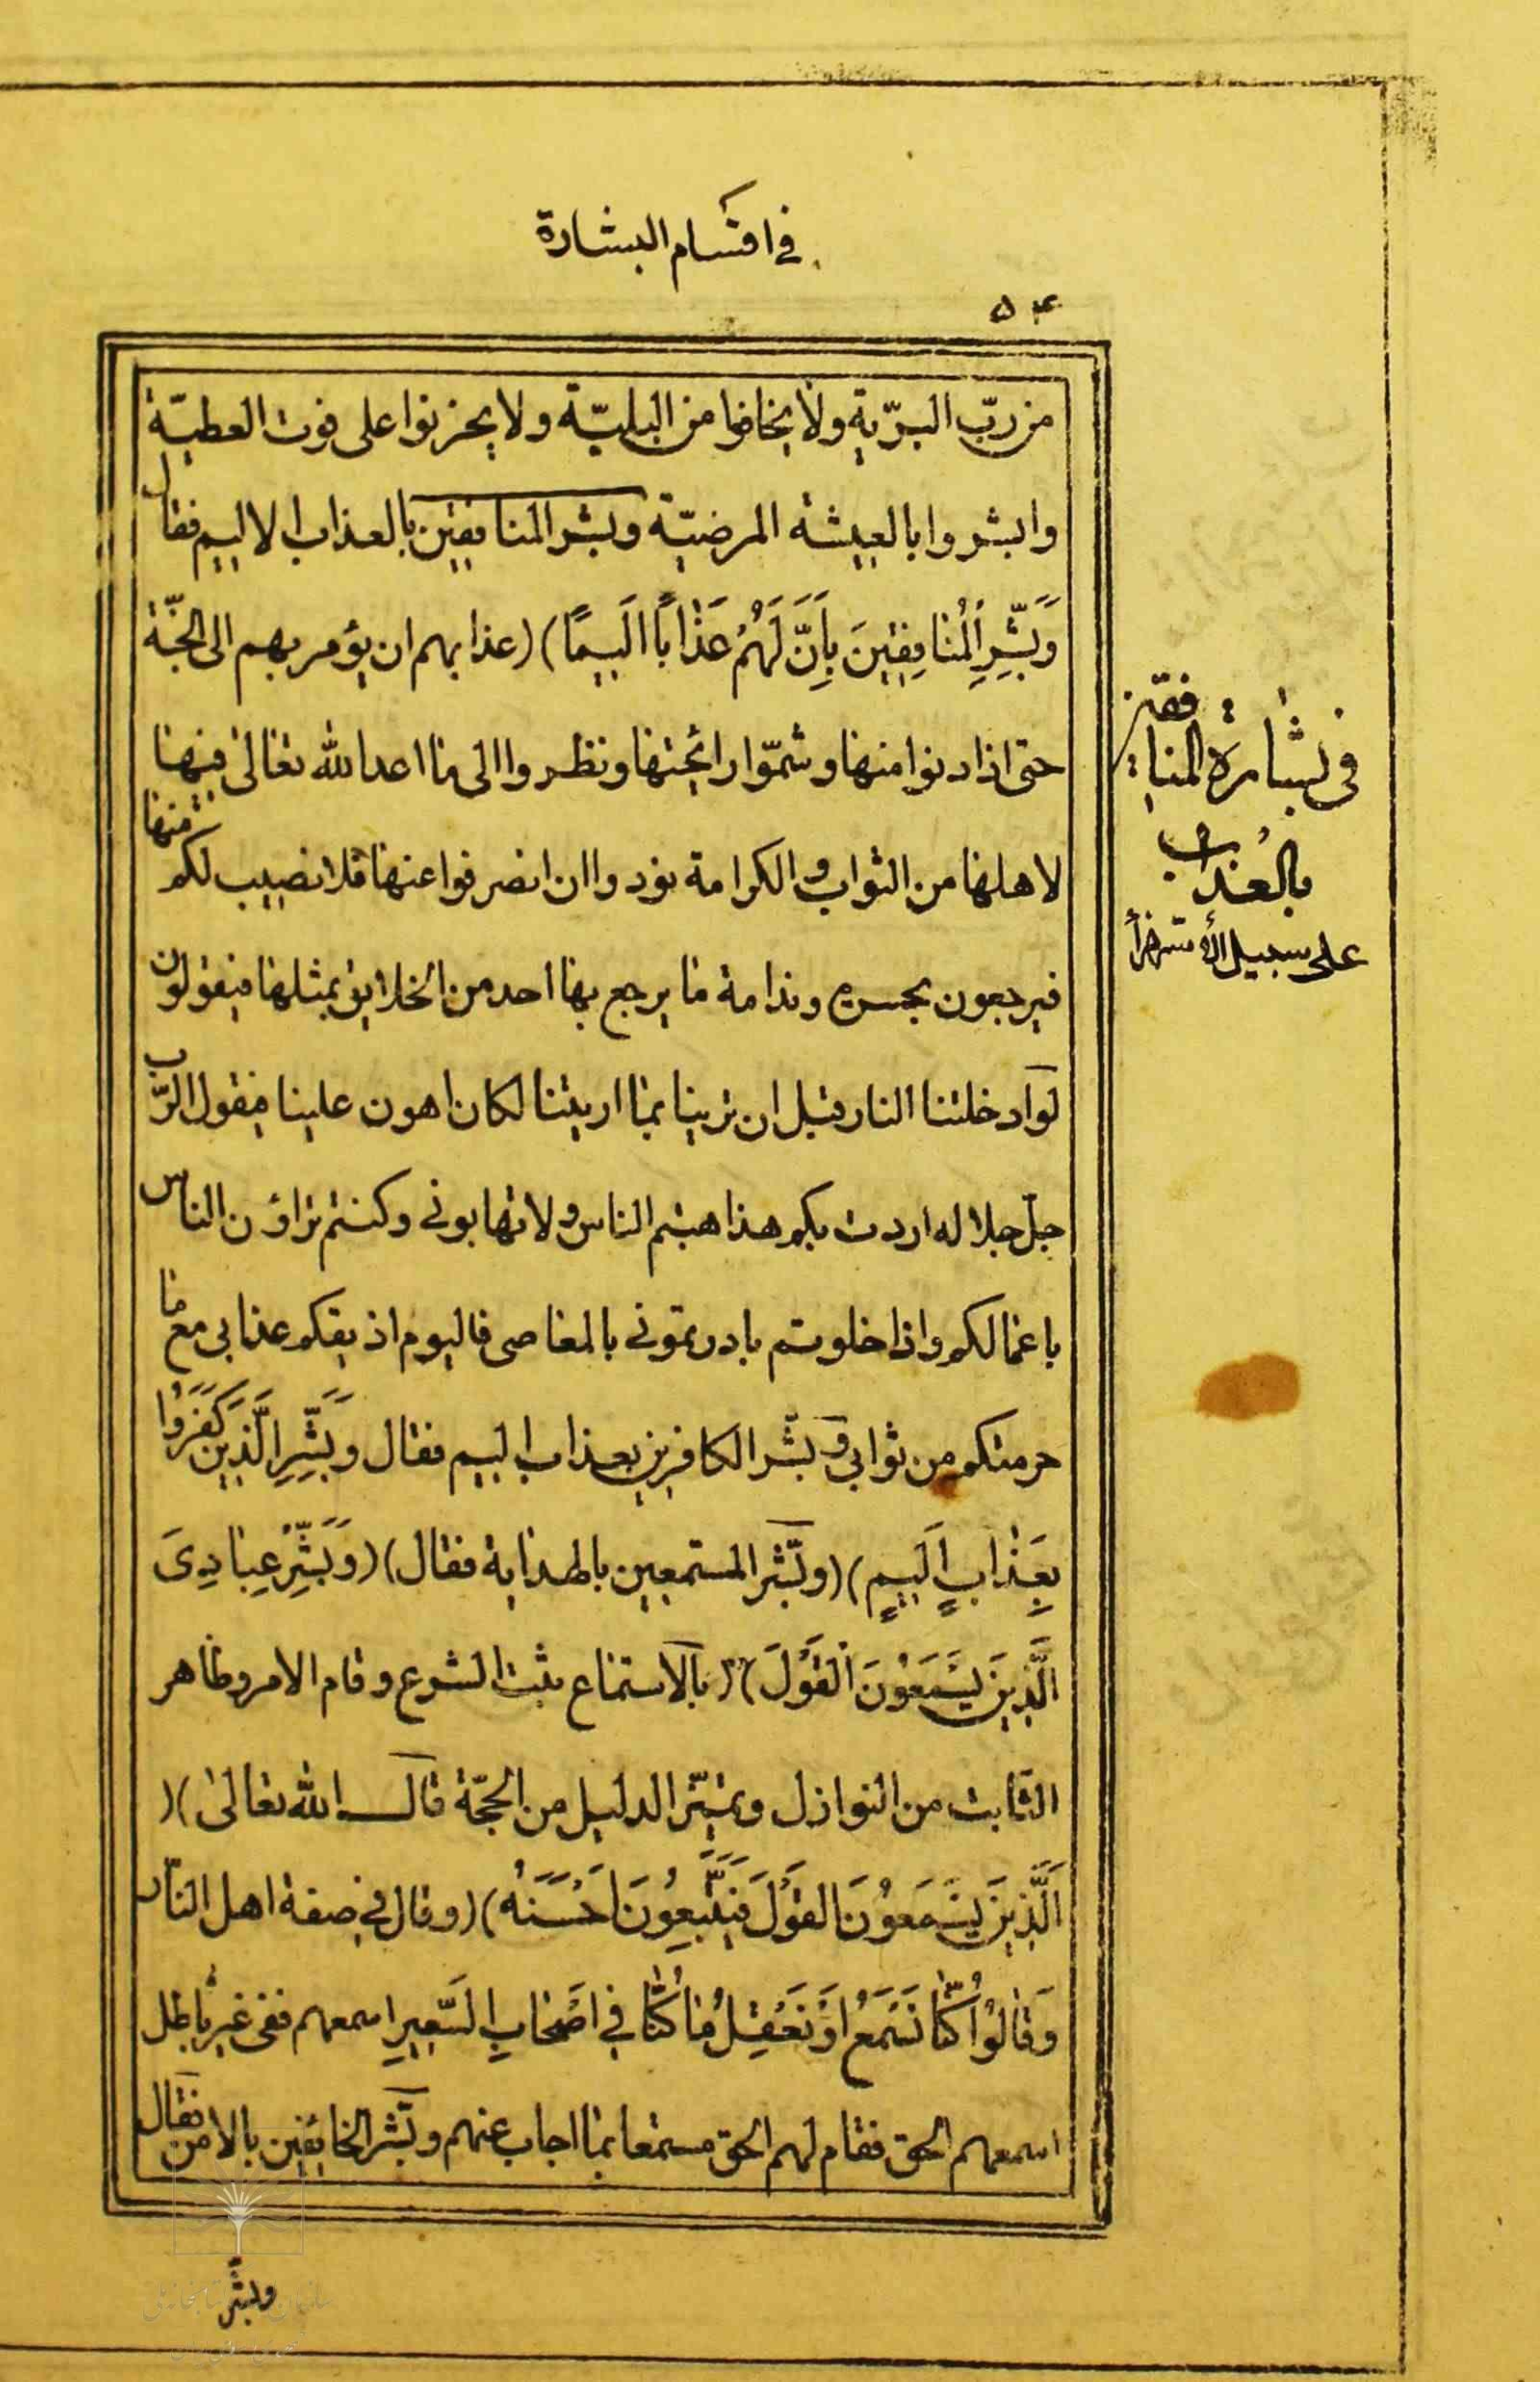 في اقسام البشارة
۵۴
من ربّ البريّة ولا يخافوا من البليّة ولا يحزنوا على فوت العطيّة
وابشروا بالعيشة المرضيّة وبشر المنافقين بالعذاب الاليم فقال
وَبَشِّرِ الْمُنافِقِينَ بِاَنَّ لَهُمْ عَذاباً اَلِيمًا) (عذابهم ان يؤمر بهم الى الجنّة
حتى اذا دنوا منها وشمّوا رائحتها ونظروا الى ما اعد الله تعالى فيها
لاهلها من الثواب والكرامة نودوا ان انصرفوا عنها فلا نصيب لكم منها
فيرجعون بحسرة وندامة ما يرجع بها احد من الخلايق بمثلها فيقولون
لو ادخلتنا النار قبل ان ترينا بما اريتنا لكان اهون علينا فيقول الربّ
جلّ جلاله اردت بكم هذا هبتم الناس ولا تهابونى وكنتم تراؤن الناس
باعمالكم واذا خلوتم بادرتمونى بالمعاصى فاليوم اذيقكم عذابى مع ما
حرمتكم من ثوابى وبشّر الكافرين بعذاب اليم فقال وَبَشِّرِ الَّذِينَ كَفَرُوا
بِعَذابٍ اَلِيمٍ) (وبشّر المستمعين بالهداية فقال) (وَبَشِّرْ عِبادِىَ
الَّذِينَ يَسْتَمِعُونَ الْقَوْلَ) (بالاستماع يثبت الشرع وقام الامر وظاهر
الثابت من النوازل ويميّز الدليل من الحجّة قال الله تعالى) (
اَلَّذِينَ يَسْتَمِعُونَ الْقَوْلَ فَيَتَّبِعُونَ اَحْسَنَهُ) (وقال في صفة اهل النّار
وَقالُوا لَوْ كُنّا نَسْمَعُ اَوْ نَعْقِلُ ما كُنّا في اَصْحابِ السَّعِيرِ اسمعهم ففى غير باطل
اسمعهم الحق فقام لهم الحق مستمعا بما اجاب عنهم وبشّر الخائفين بالامن فقال
وبشّر
في بشارة المنافقين
بالعذاب
على سبيل الاستهزاء